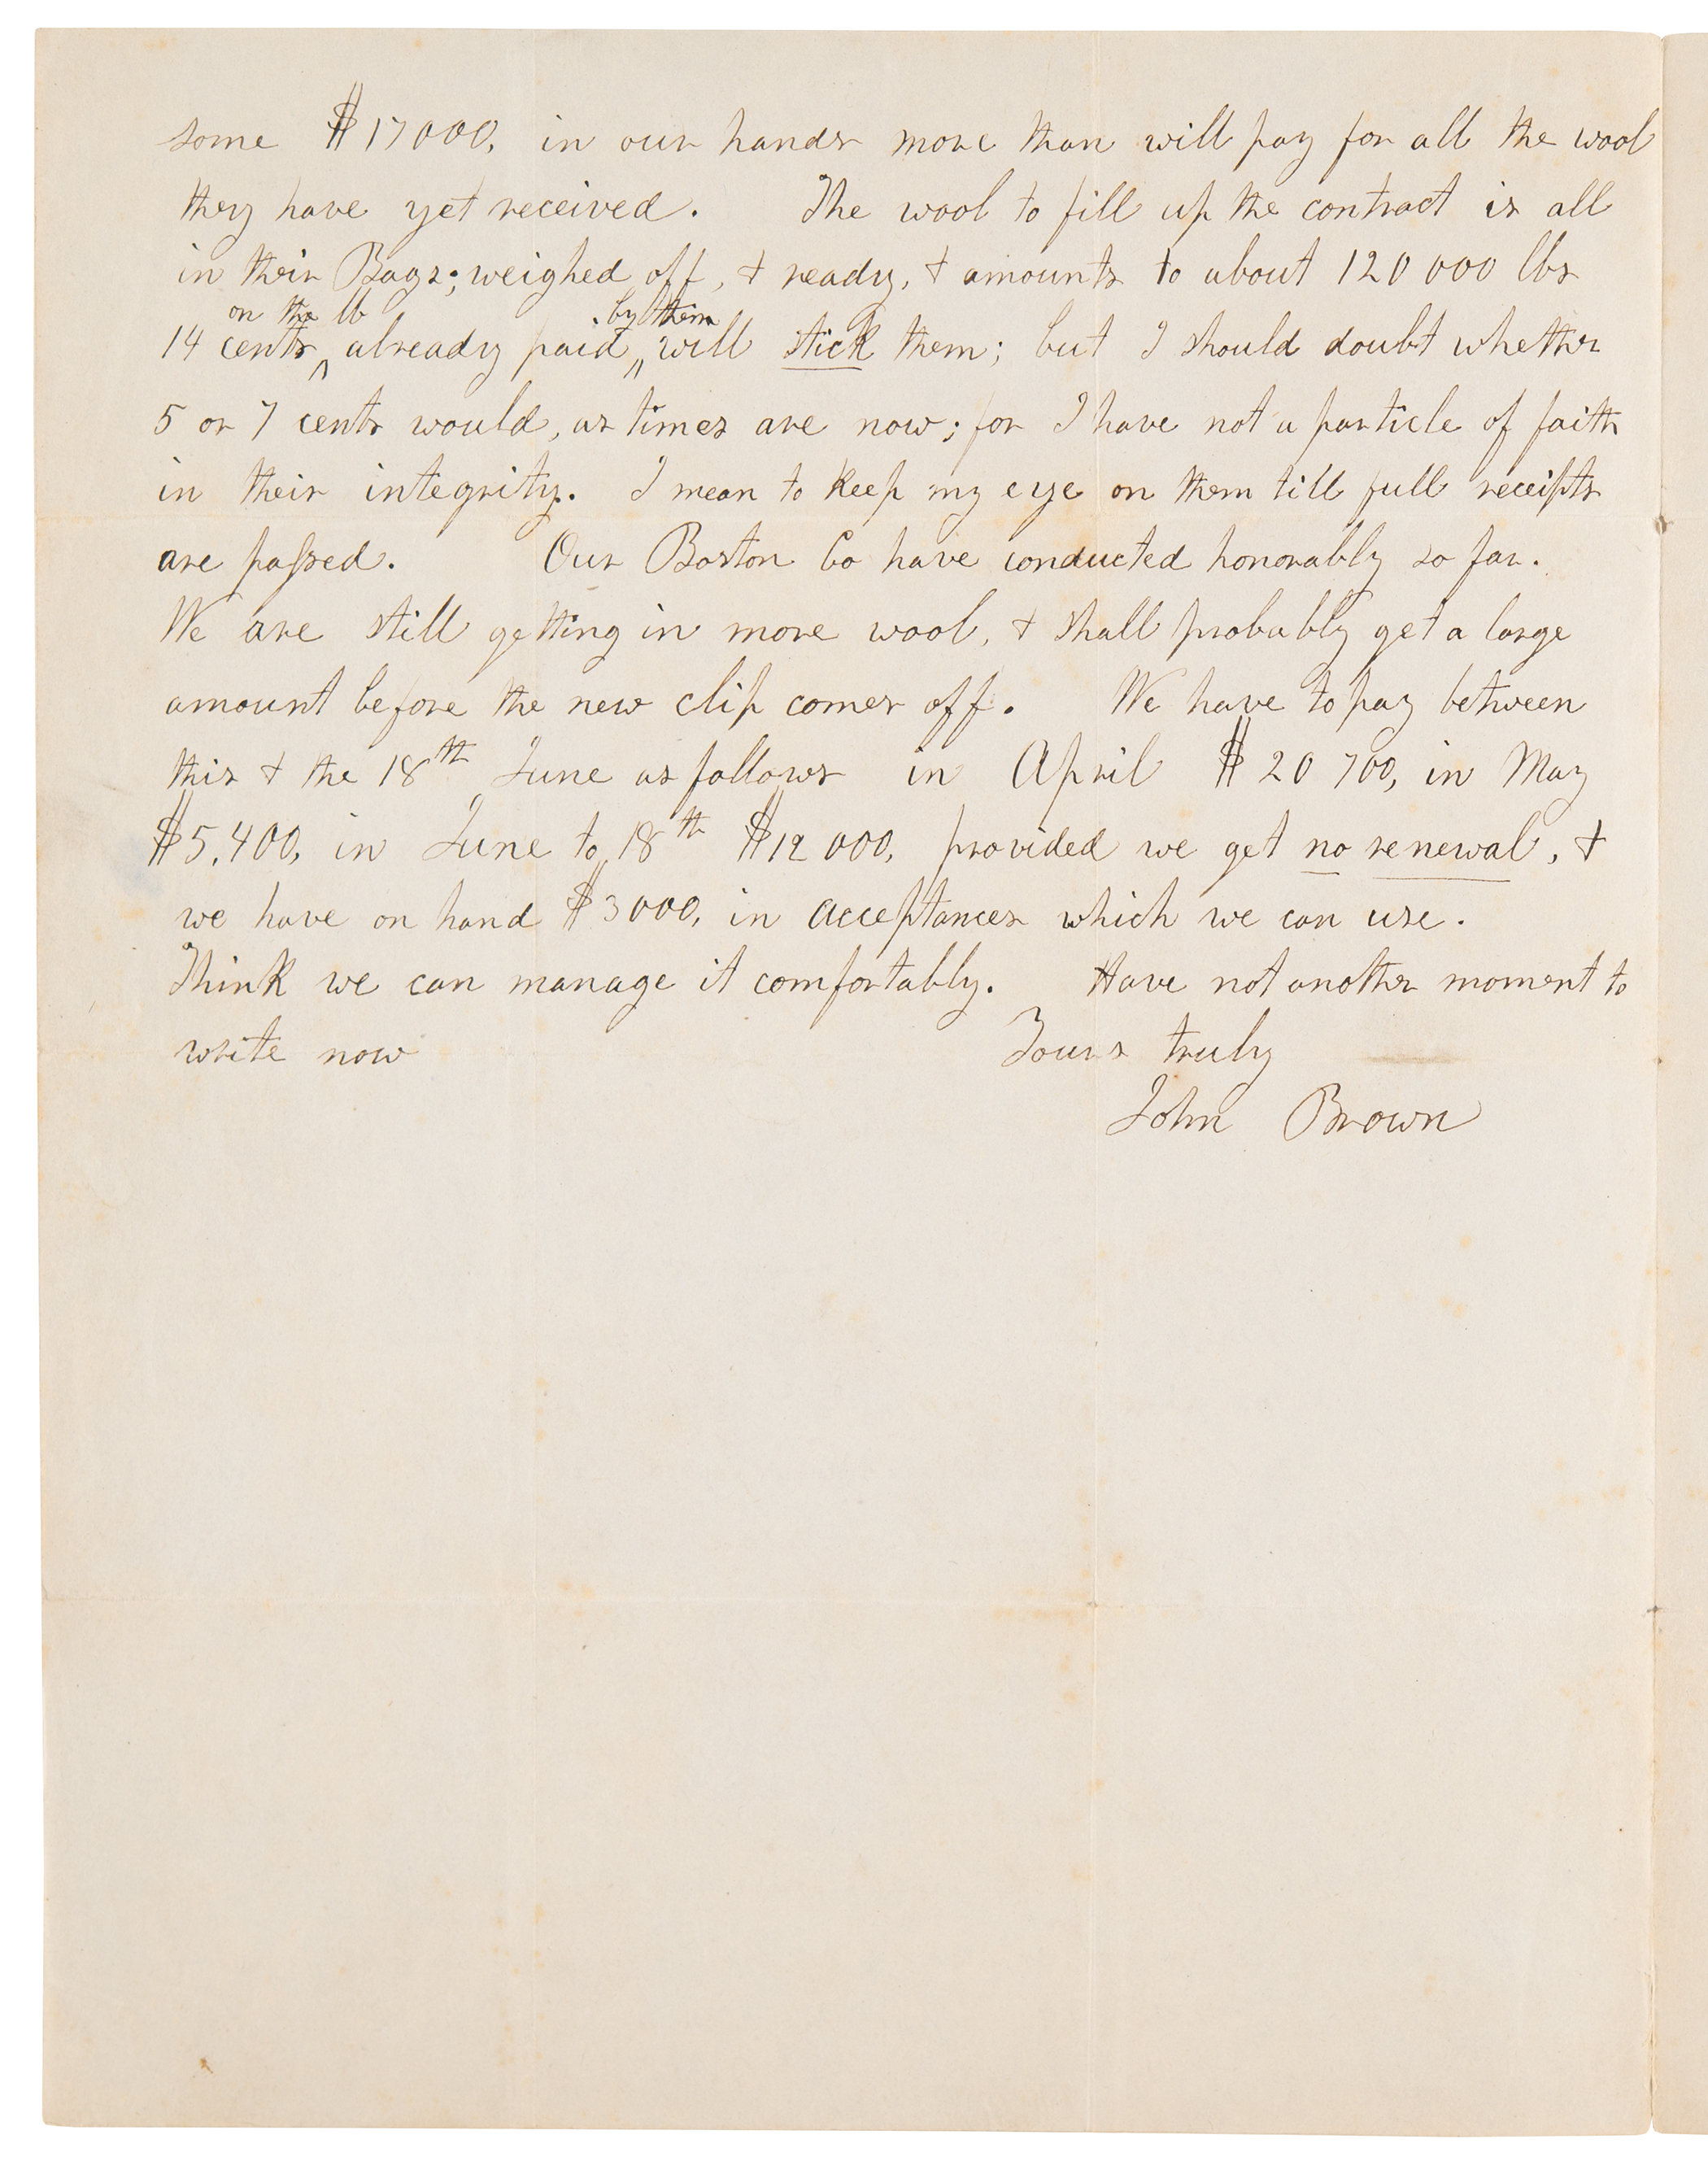 some $17000, in our hands more than will pay for all the wool
they have yet received. The wool to fill up the contract is all
in their Bags; weighed off, & ready, & amounts to about 120 000 lbs
on the lb by them
14 cents already paid will stick them; but I should doubt whether
5 or 7 cents would, as times are now; for I have not a particle of faith
in their integrity. I mean to keep my eye on them till full receipts
are passed. Our Boston Co have conducted honorably so far.
We are still getting in more wool, & shall probably get a large
amount before the new clip comes off. We have to pay between
this & the 18th June as follows in April $20 700, in May
$5,400, in June to 18th $12 000, provided we get no renewal, &
we have on hand $3000, in acceptances which we can use.
Think we can manage it comfortably. Have not another moment to
write now Yours truly
John Brown